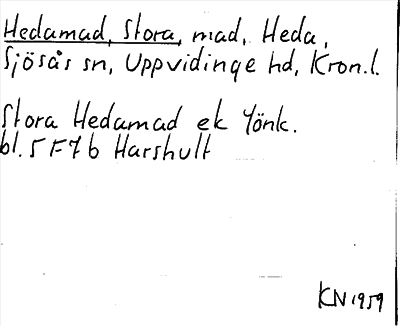 Hedamad, Stora, mad, Heda,
Sjösås sn, Uppvidinge hd, Kron.l.
Stora Hedamad ek Jönk.
bl. 5 F7 b Harshult
KN 1959